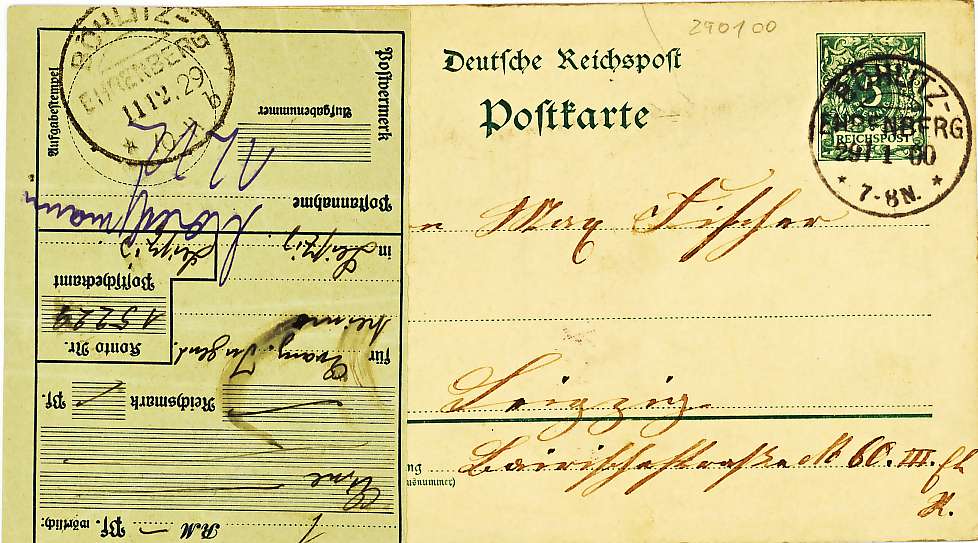 290100
Deutsche Reichspost
Postkarte
5
REICHSPOST
BÖHLITZ-
EHRENBERG
29/1 00
* 7-8N. *
Max Fischer
Leipzig
ng
usnummer)
No 60. III.
R.
BÖHLITZ-
EHRENBERG
11 12. 29
* b
RM — Pf. wörtlich:
Eine
Reichsmark Pf.
für Evang. Jugend
Konto Nr.
15229
Postscheckamt
in Leipzig. Leipzig
Postannahme
Aufgabenummer
Postvermerk
Aufgabestempel